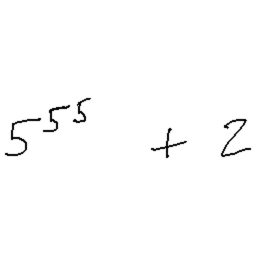 5^{5^5} + 2